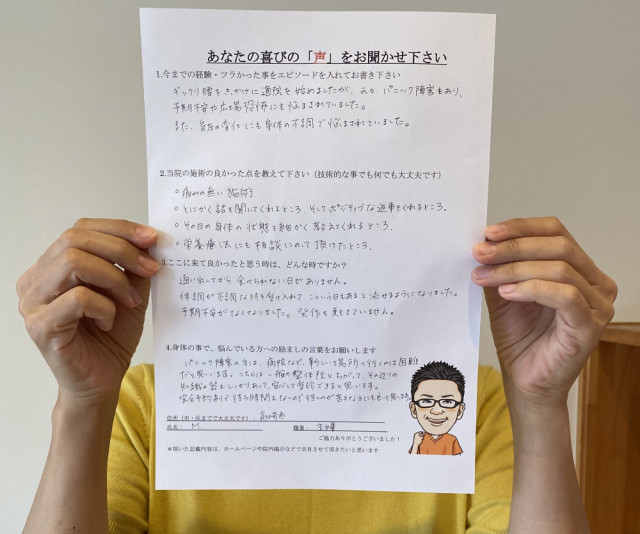 あなたの喜びの「声」をお聞かせ下さい
1.今までの経験・ツラかった事をエピソードを入れてお書き下さい
ギックリ腰をきっかけに通院を始めましたが、元々、パニック障害もあり、
予期不安や広場恐怖にも悩まされていました。
また、気圧の変化にも身体の不調で悩まされていました。
2.当院の施術の良かった点を教えて下さい（技術的な事でも何でも大丈夫です）
○痛みの無い施術
○とにかく話を聞いてくれるところ、そしてポジティブな返事をくれるところ。
○その日の身体の状態を細かく教えてくれるところ。
○栄養療法にも相談にのって頂けたところ。
3.ここに来て良かったと思う時は、どんな時ですか？
通い出してから食べられない日がありません。
体調が不調な時を受け入れて、こういう日もあると流せるようになりました。
予期不安がなくなりました。発作も起きていません。
4.身体の事で、悩んでいる方への励ましの言葉をお願いします
パニック障害の方は、病院など、新しい場所へ行くのは困難
だと思います。こちらは一般の整体院とちがって、その辺りの
知識が豊富しっかりあって、安心して受診できると思います。
完全予約あり待ち時間もないので待つのが苦手な方にも良いと思います
住所（市・区までで大丈夫です）：高崎市
氏名：M. 職業：主婦
ご協力ありがとうございました！
＊頂いた記載内容は、ホームページや院内掲示などで共有させて頂きたいと思います